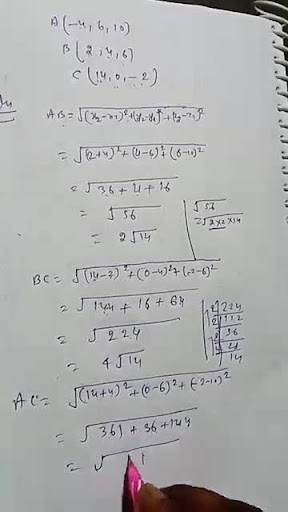 A(-4, 6, 10)
B(2, 4, 6)
C(14, 0, -2)
AB = √(x₂-x₁)²+(y₂-y₁)²+(z₂-z₁)²
= √(2+4)²+(4-6)²+(6-10)²
= √36+4+16
= √56
= 2√14
√56
=√2×2×14
BC = √(14-2)²+(0-4)²+(-2-6)²
= √144+16+64
= √224
= 4√14
2 224
2 112
2 56
2 28
14
AC = √(14+4)²+(0-6)²+(-2-10)²
= √361+36+144
= √